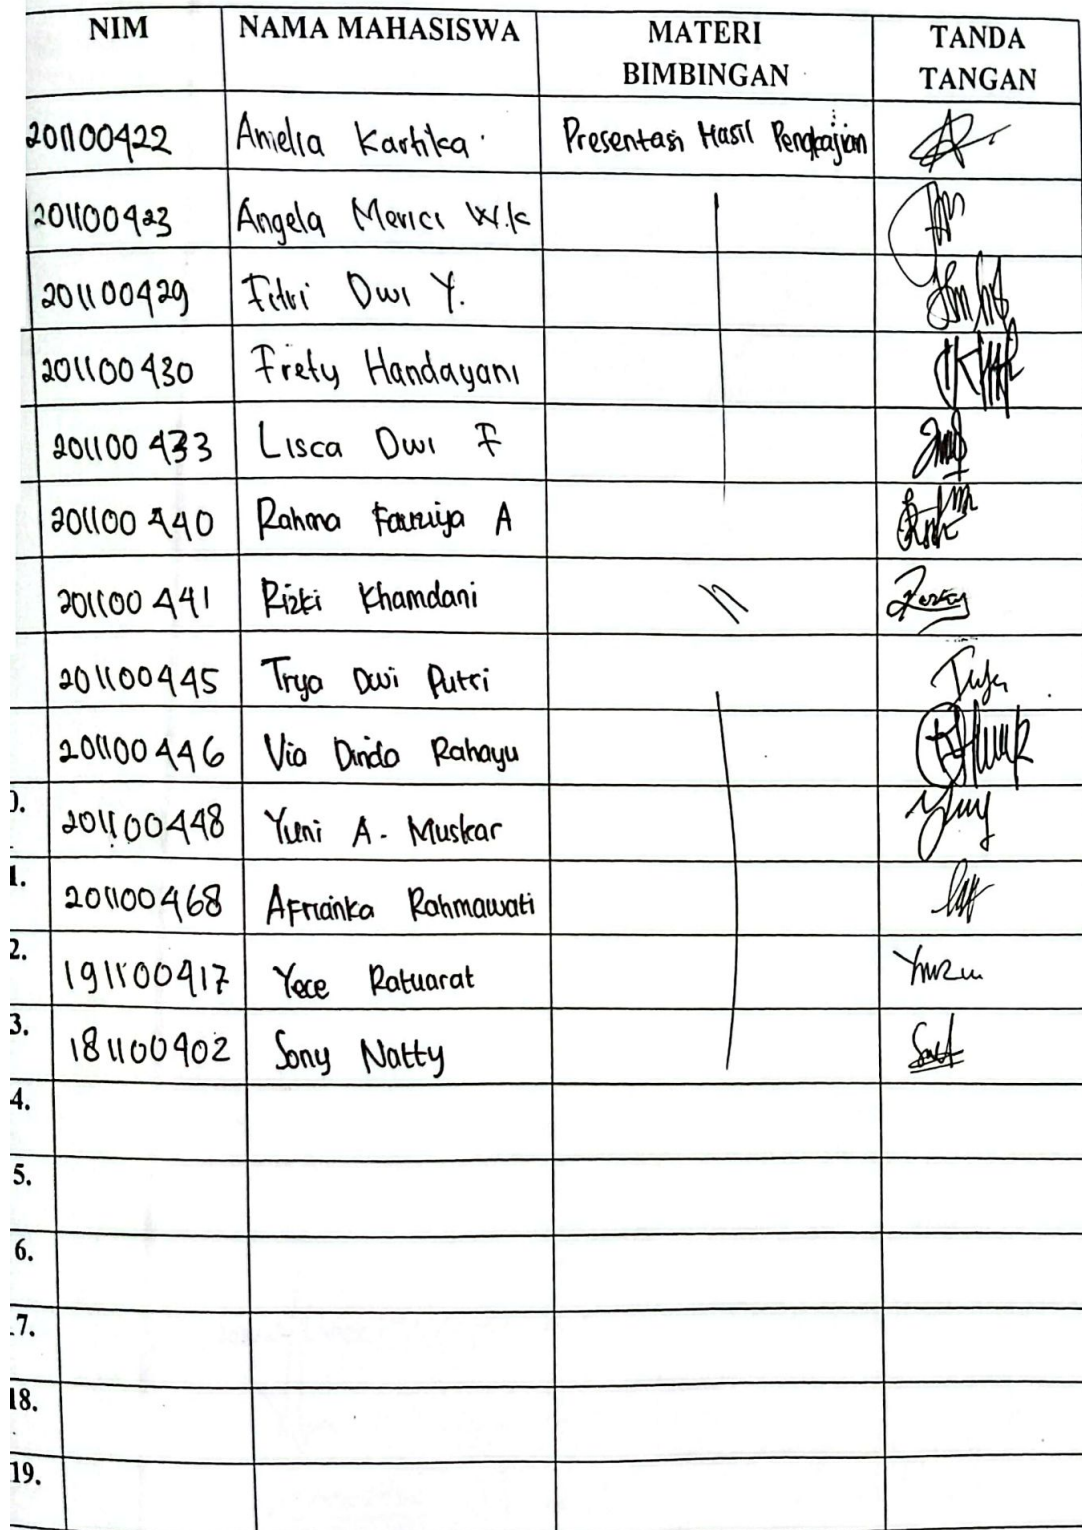 NIM NAMA MAHASISWA MATERI BIMBINGAN TANDA TANGAN
201100422 Amelia Kartika Presentasi Hasil Pengkajian
201100423 Angela Merici W.K
201100429 Fitri Dwi Y.
201100430 Frety Handayani
201100433 Lisca Dwi F
201100440 Rahma Fauziya A
201100441 Rizki Khamdani 11
201100445 Trya Dwi Putri
201100446 Via Dinda Rahayu
0. 201100448 Yuni A. Muskar
1. 201100468 Afrianka Rahmawati
2. 191100417 Yece Ratuarat
3. 181100402 Sony Natty
4.
5.
6.
7.
18.
19.